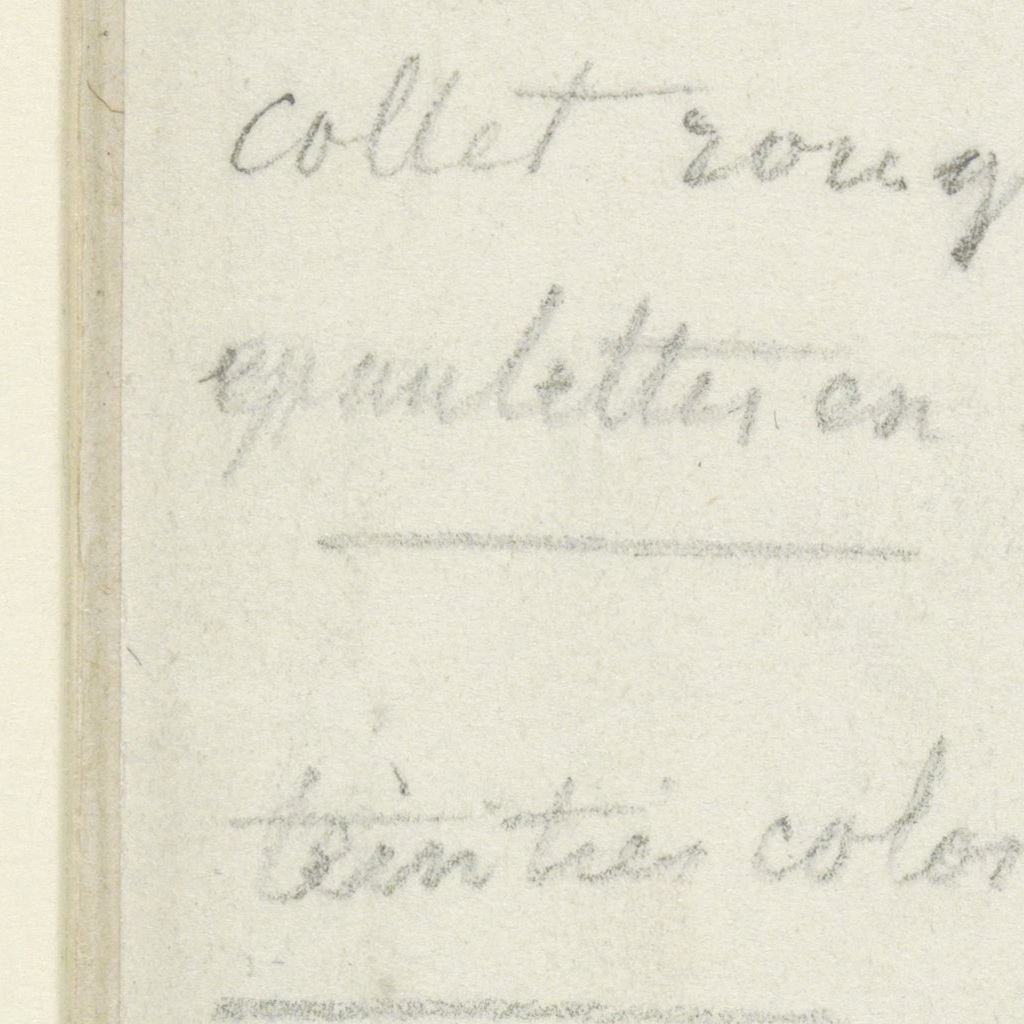 collet roug
epaulettes en
teintes color